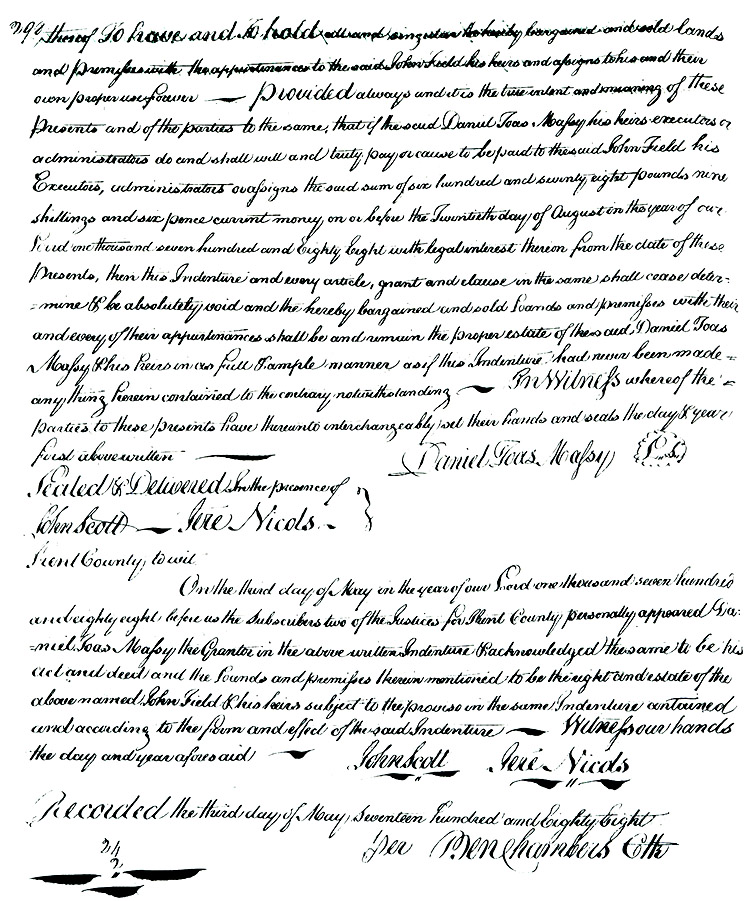 392
thereof To have and To hold all and singular the hereby bargained and sold lands
and premisses with the appurtenances to the said John Field his heirs and assigns to his and their
own proper use forever — Provided always and it is the true intent and meaning of these
Presents and of the parties to the same, that if the said Daniel Toas Massy his heirs executors or
administrators do and shall well and truly pay or cause to be paid to the said John Field his
Executors, administrators or assigns the said sum of six hundred and seventy eight pounds nine
shillings and six pence current money, on or before the Twentieth day of August in the year of our
Lord one thousand seven hundred and Eighty Eight with legal interest thereon from the date of these
Presents, then this Indenture and every article, grant and clause in the same shall cease deter-
=mine & be absolutely void and the hereby bargained and sold Lands and premisses with their
and every of their appurtenances shall be and remain the proper estate of the said Daniel Toas
Massy & his heirs in as full & ample manner as if this Indenture had never been made =
any thing herein contained to the contrary notwithstanding — In Witness whereof the =
parties to these presents have thereunto interchangeably set their hands and seals the day & year
first above written — Daniel Toas Massy (L.S.)
Sealed & Delivered In the presence of
John Scott — Jere Nicols }
Kent County, to wit
On the third day of May in the year of our Lord one thousand seven hundred
and eighty eight before us the Subscribers two of the Justices for Kent County personally appeared Da-
=niel Toas Massy the Grantor in the above written Indenture & acknowledged the same to be his
act and deed and the Lands and premisses therein mentioned to be the right and estate of the
above named John Field & his heirs subject to the proviso in the same Indenture contained
and according to the form and effect of the said Indenture — Witness our hands
the day and year aforesaid — John Scott Jere Nicols
Recorded the third day of May seventeen hundred and Eighty Eight
per Ben Chambers Clk